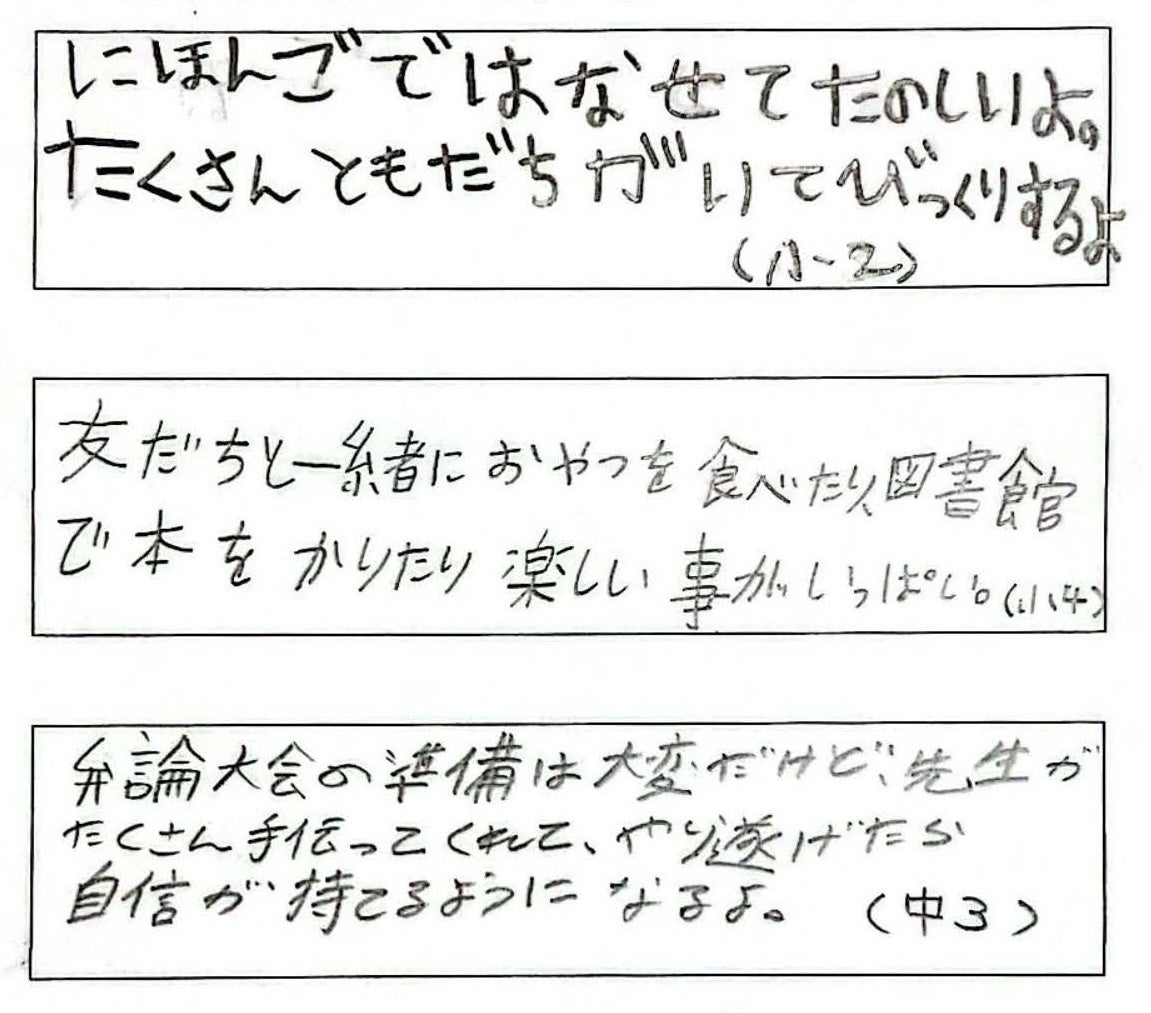 にほんごではなせてたのしいよ。
たくさんともだちがいてびっくりするよ
(小-2)
友だちと一緒におやつを食べたり、図書館
で本をかりたり楽しい事がいっぱい。(小4)
弁論大会の準備は大変だけど、先生が
たくさん手伝ってくれて、やり遂げたら
自信が持てるようになるよ。(中3)